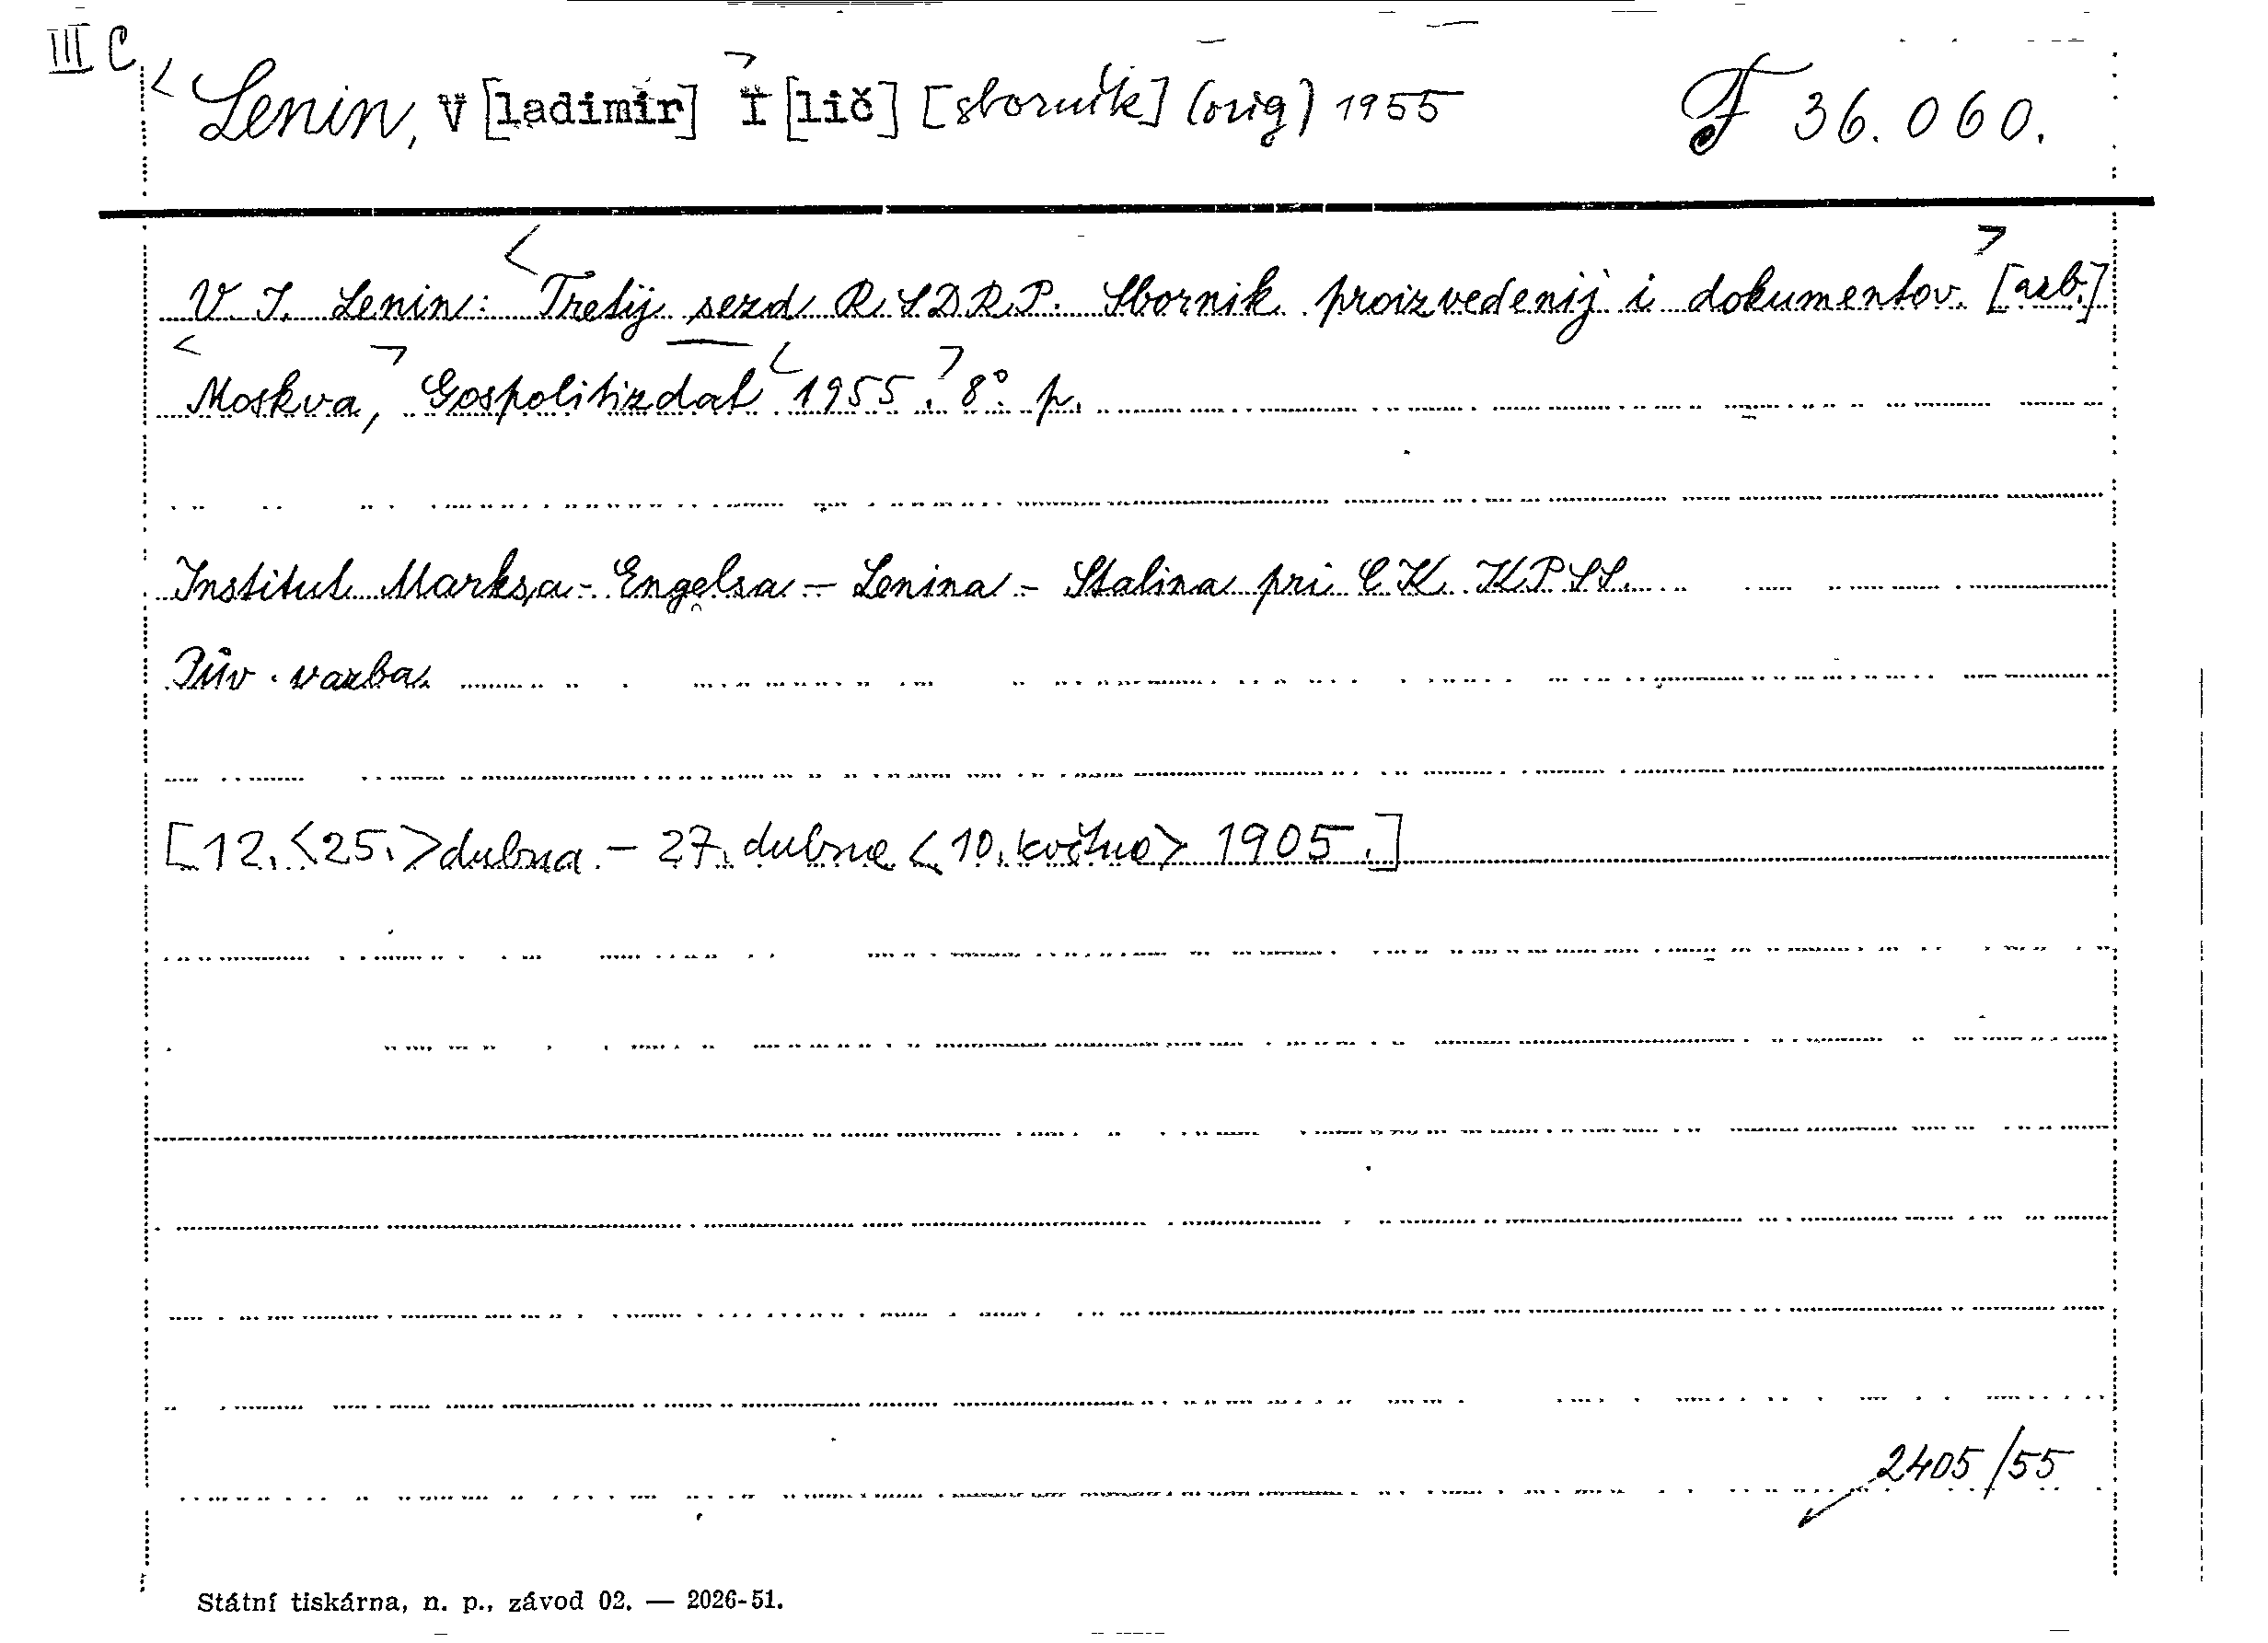 III C
< Lenin, V [ladimir] I [lič] > [sborník] (orig) 1955 F 36.060.
V. I. Lenin: < Tretij sezd RSDRP. Sbornik proizvedenij i dokumentov. > [azb.]
< Moskva, > Gospolitizdat < 1955. > 8° p.
Institut Marksa - Engelsa - Lenina - Stalina pri C K KPSS.
Pův. vazba
[12. <25.> dubna - 27. dubna <10. května> 1905.]
2405/55
Státní tiskárna, n. p., závod 02. — 2026-51.